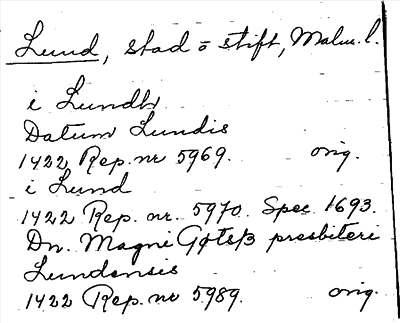 Lund, stad o stift, Malm. l.
i Lundh
Datum Lundis
1422 Rep. nr 5969. orig.
i Lund
1422 Rep. nr. 5970. Spec 1693.
Dn. Magni Gøtsß presbiteri
Lundensis
1422 Rep. nr 5989. orig.